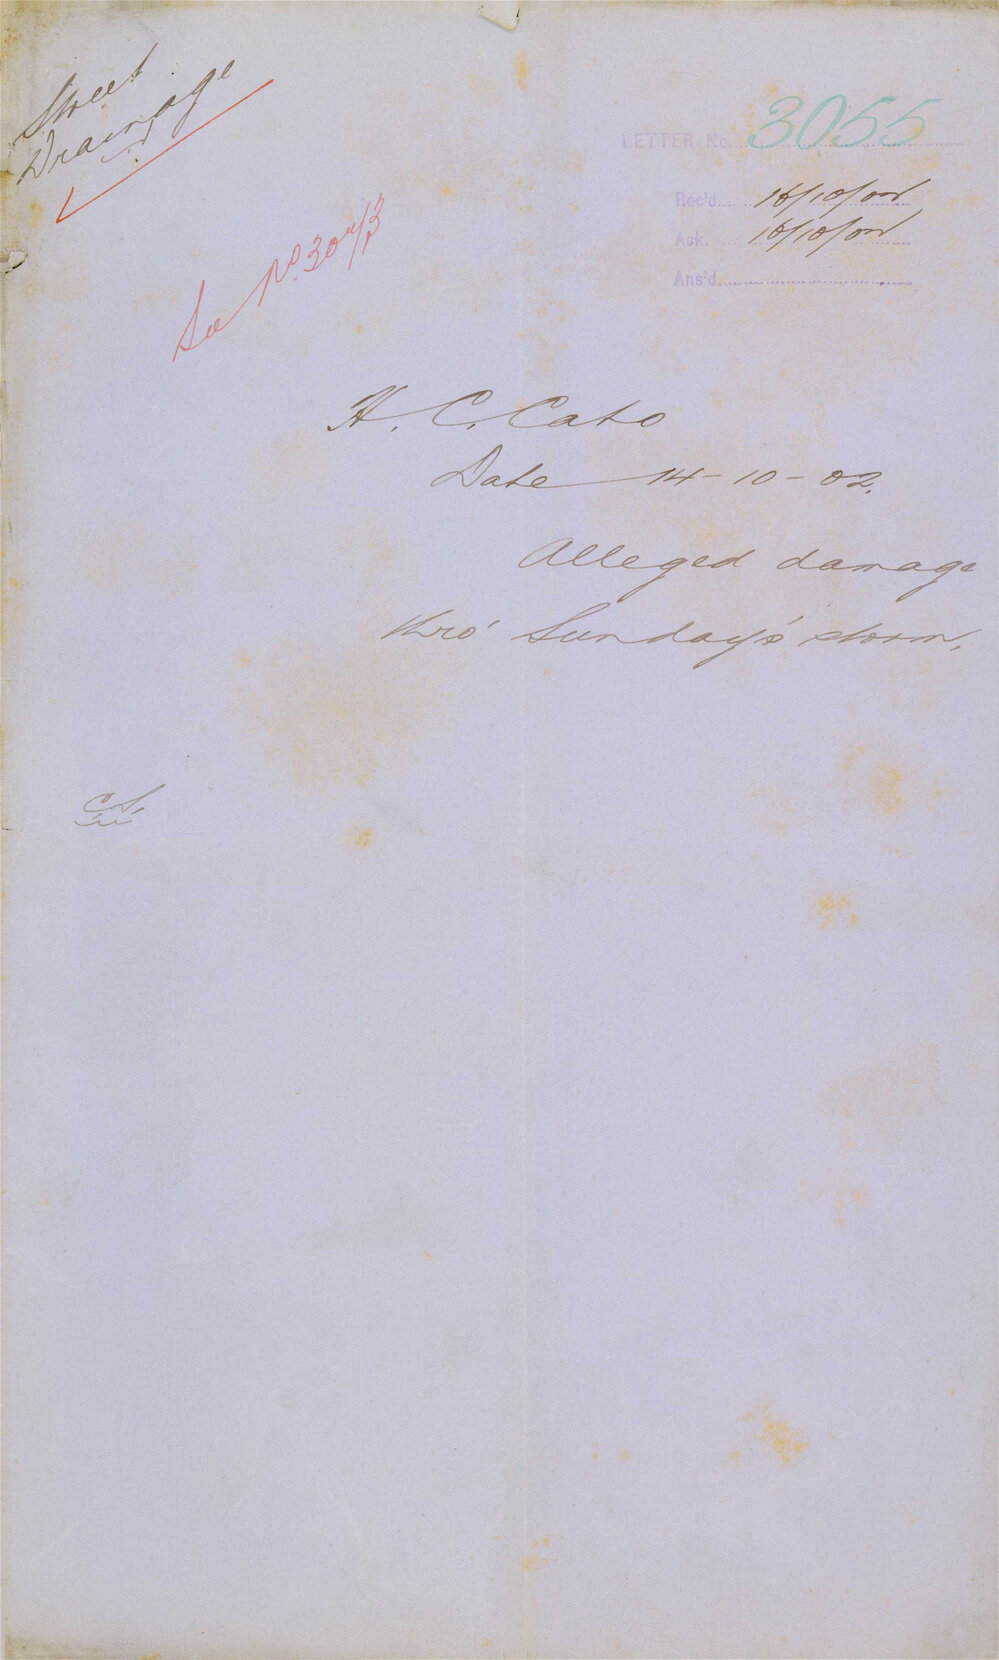 Street
Drainage
LETTER No. 3055
Rec'd 16/10/02
Ack. 16/10/02
Ans'd
See No. 3043
H. C. Cato
Date 14-10-02.
Alleged damage
thro' Sunday's storm.
C.S.